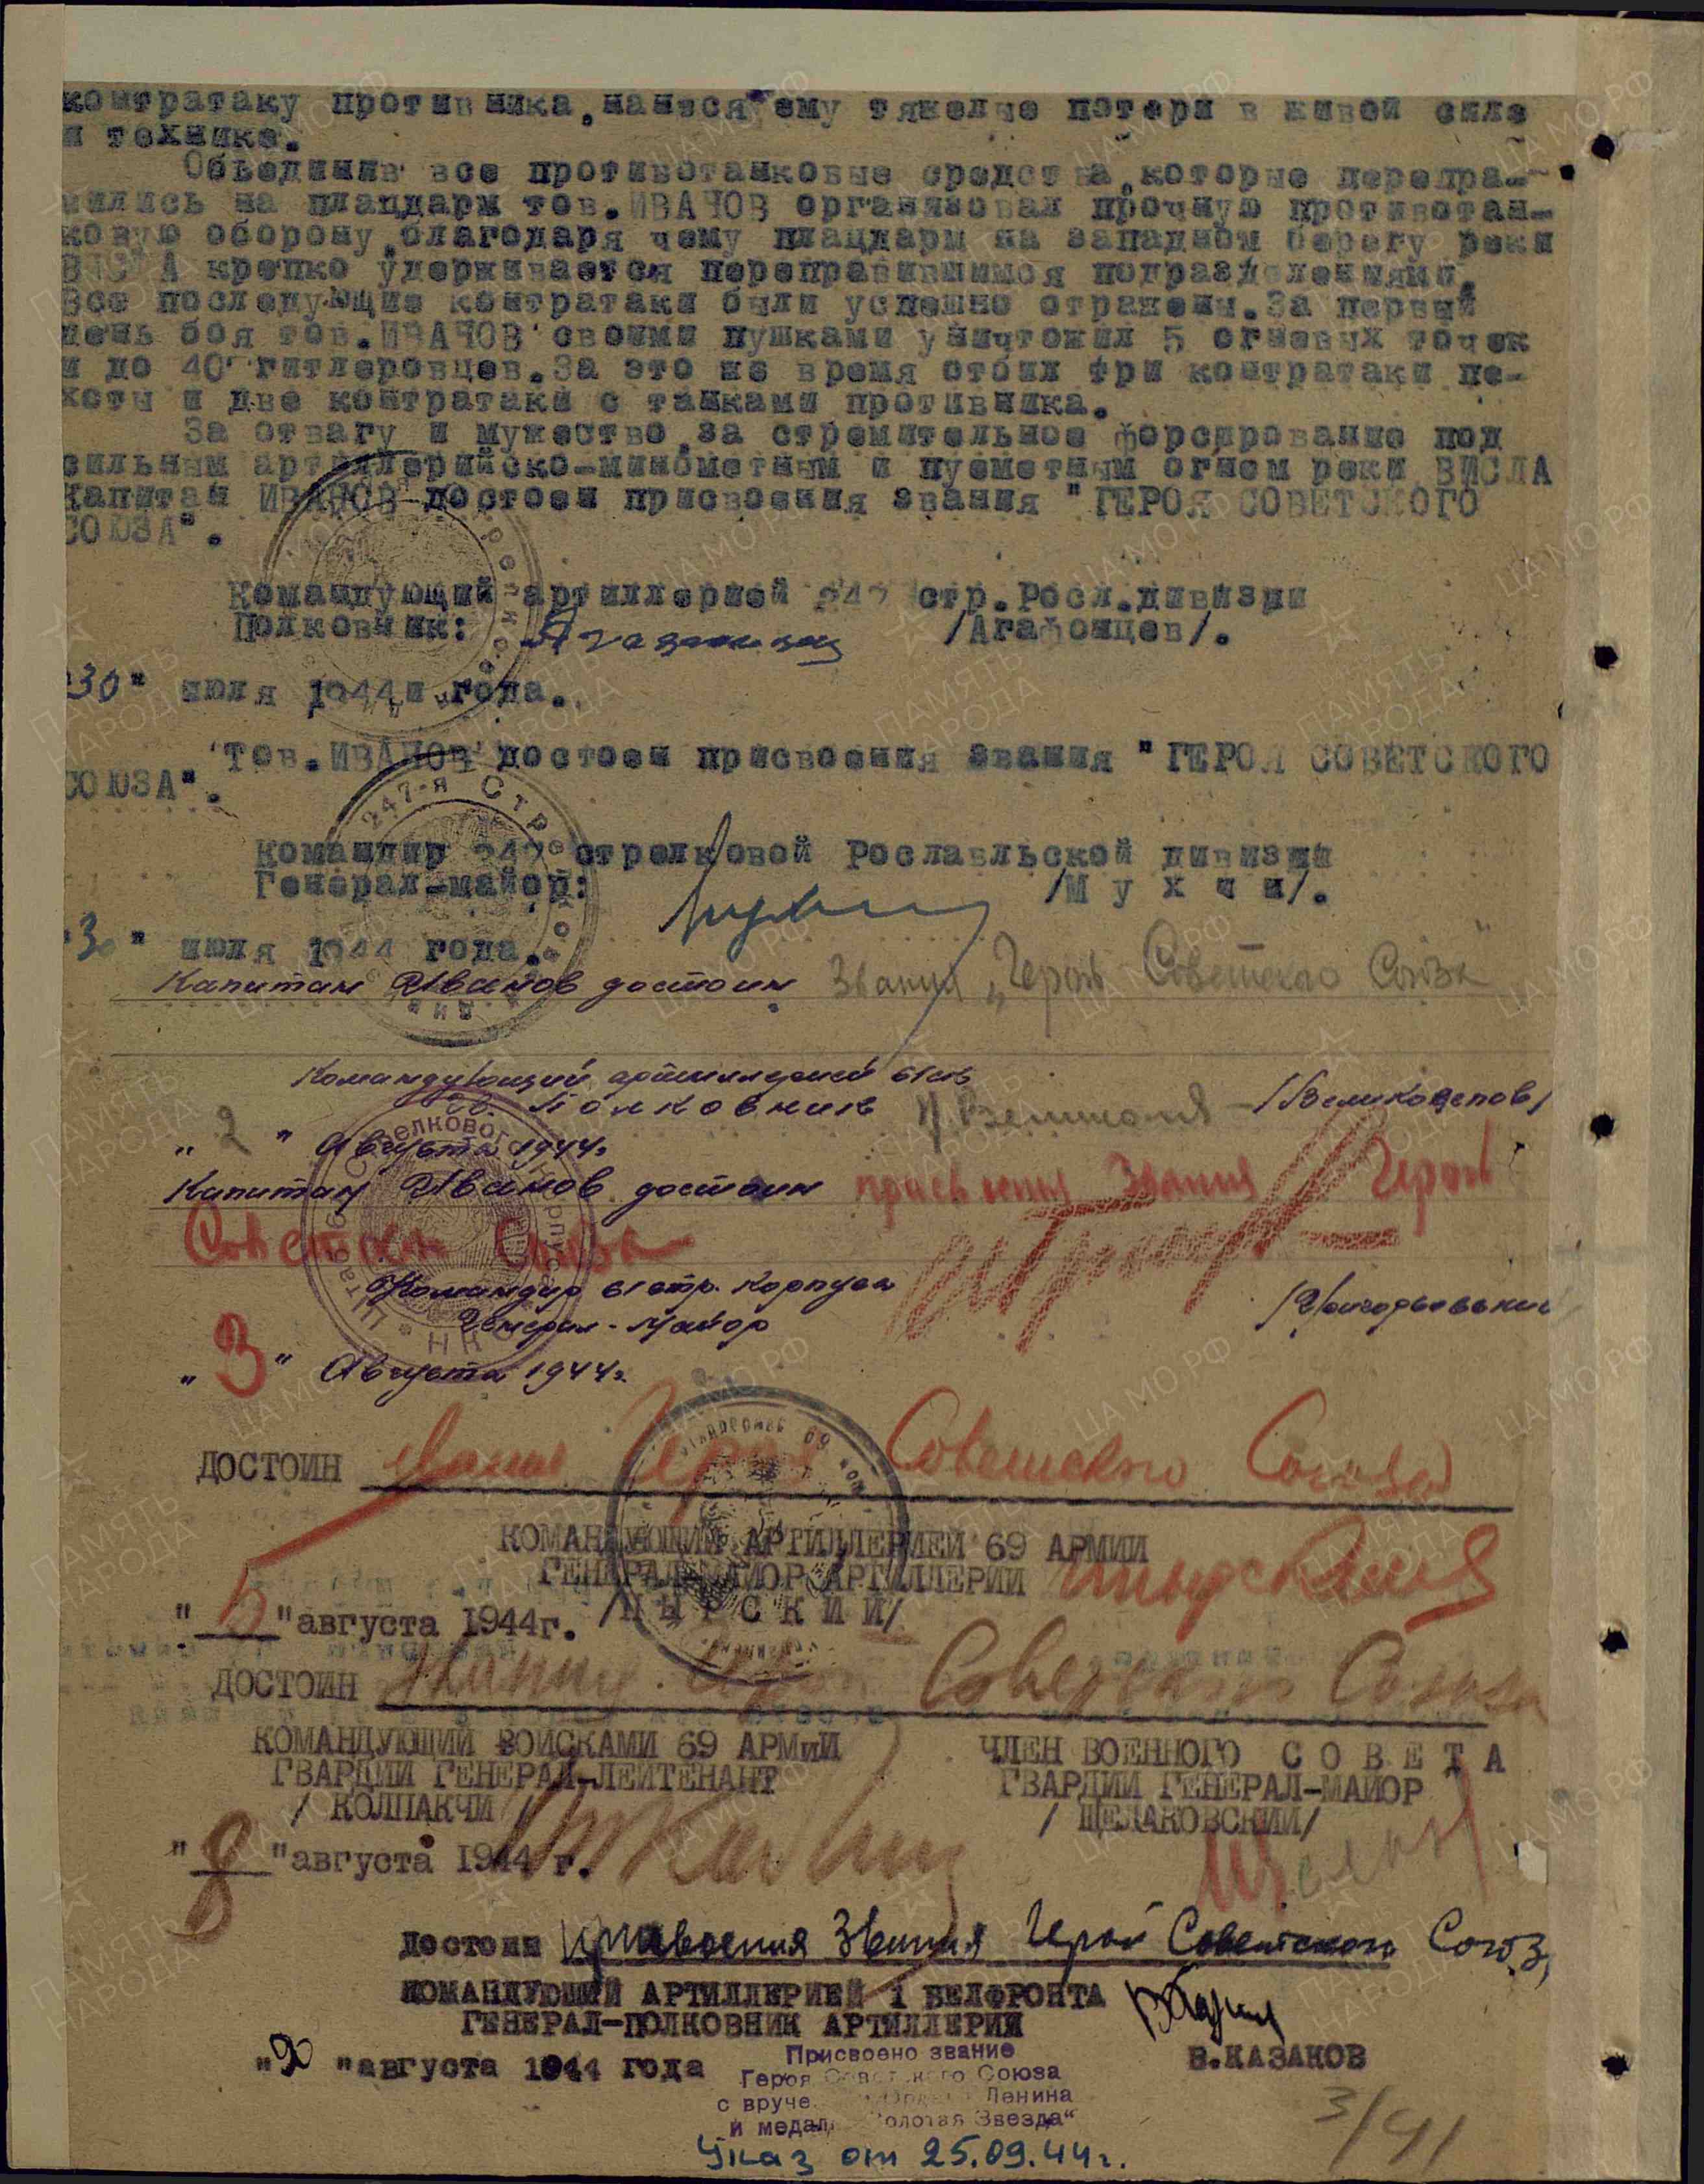 контратаку противника, нанеся ему тяжелые потери в живой силе
и технике.
Объединив все противотанковые средства, которые перепра-
вились на плацдарм тов. ИВАНОВ организовал прочную противотан-
ковую оборону, благодаря чему плацдарм на западном берегу реки
ВИСЛА крепко удерживается переправившимися подразделениями.
Все последующие контратаки были успешно отражены. За первый
день боя тов. ИВАНОВ своими пушками уничтожил 5 огневых точек
и до 40 гитлеровцев. За это же время отбил три контратаки пе-
хоты и две контратаки с танками противника.
За отвагу и мужество, за стремительное форсирование под
сильным артиллерийско-минометным и пулеметным огнем реки ВИСЛА
капитан ИВАНОВ достоен присвоения звания "ГЕРОЯ СОВЕТСКОГО
СОЮЗА".
Командующий артиллерией 247 стр. Росл. дивизии
Полковник: /Агафонцев/.
"30" июля 1944 года.
Тов. ИВАНОВ достоен присвоения звания "ГЕРОЯ СОВЕТСКОГО
СОЮЗА".
247-я Стрелков
Командир 247 стрелковой Рославльской дивизии
Генерал-майор: /М у х и н/.
"30" июля 1944 года.
Капитан Иванов достоин звания „Герой Советского Союза"
Командующий артиллерией 61 ск
Полковник /Великолепов/
„2" Августа 1944г.
Капитан Иванов достоин присвоения звания Герой
Советского Союза
Штаб 61 Стрелкового Корпуса
Командир 61 стр. Корпуса
Генерал-Майор
„3" Августа 1944г.
ДОСТОИН звания Героя Советского Союза
КОМАНДУЮЩИЙ АРТИЛЛЕРИЕЙ 69 АРМИИ
ГЕНЕРАЛ-МАЙОР АРТИЛЛЕРИИ
"5" августа 1944г. /ПЫРСКИЙ/
ДОСТОИН Героя Советского Союза
КОМАНДУЮЩИЙ ВОЙСКАМИ 69 АРМиИ ЧЛЕН ВОЕННОГО С О В Е Т А
ГВАРДИИ ГЕНЕРАЛ-ЛЕЙТЕНАНТ ГВАРДИИ ГЕНЕРАЛ-МАЙОР
/ КОЛПАКЧИ / / ЩЕЛАКОВСКИЙ/
"8" августа 1944 г.
Достоин присвоения звания Герой Советского Союза
КОМАНДУЮЩИЙ АРТИЛЛЕРИЕЙ 1 БЕЛФРОНТА
ГЕНЕРАЛ-ПОЛКОВНИК АРТИЛЛЕРИИ
В.КАЗАКОВ
"20" августа 1944 года
Присвоено звание
Героя Советского Союза
с вруче Орде Ленина
и медал Золотая Звезда"
Указ от 25.09.44г.
3/41